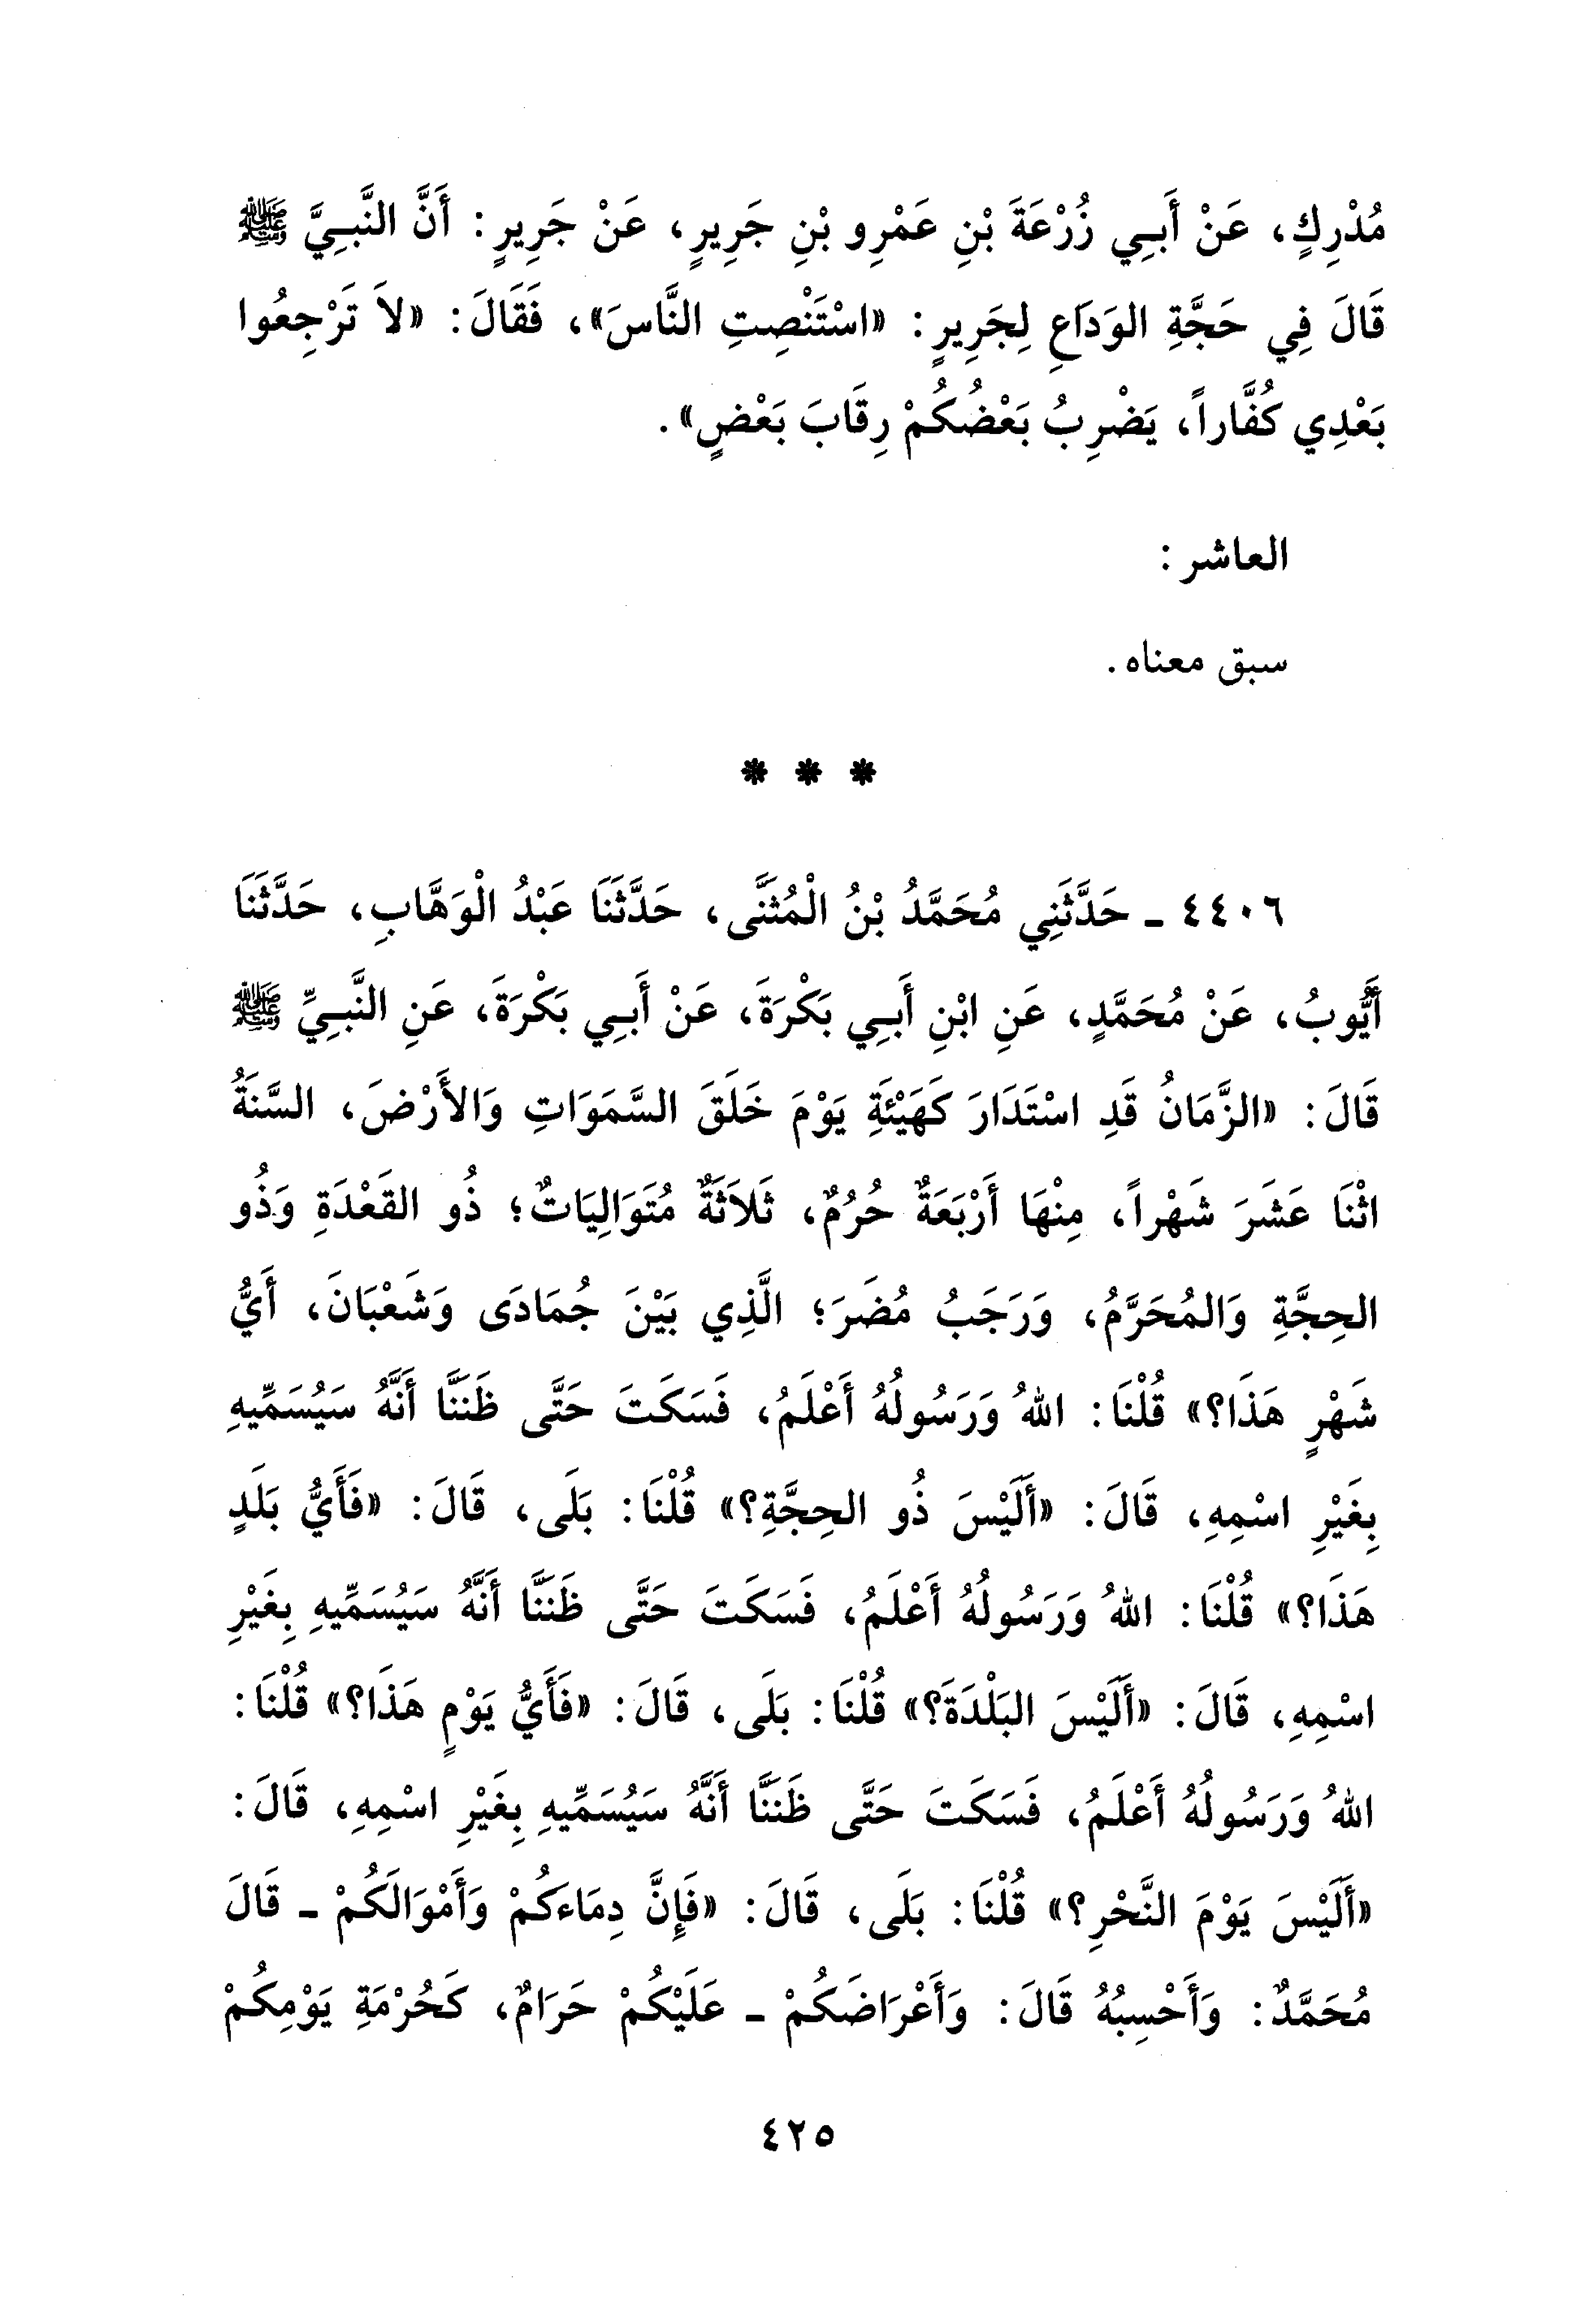 مُدْرِكٍ، عَنْ أَبِي زُرْعَةَ بْنِ عَمْرِو بْنِ جَرِيرٍ، عَنْ جَرِيرٍ: أَنَّ النَّبِيَّ ﷺ
قَالَ فِي حَجَّةِ الوَدَاعِ لِجَرِيرٍ: «اسْتَنْصِتِ النَّاسَ»، فَقَالَ: «لاَ تَرْجِعُوا
بَعْدِي كُفَّاراً، يَضْرِبُ بَعْضُكُمْ رِقَابَ بَعْضٍ».
العاشر:
سبق معناه.
* * *
٤٤٠٦ ـ حَدَّثَنِي مُحَمَّدُ بْنُ الْمُثَنَّى، حَدَّثَنَا عَبْدُ الْوَهَّابِ، حَدَّثَنَا
أَيُّوبُ، عَنْ مُحَمَّدٍ، عَنِ ابْنِ أَبِي بَكْرَةَ، عَنْ أَبِي بَكْرَةَ، عَنِ النَّبِيِّ ﷺ
قَالَ: «الزَّمَانُ قَدِ اسْتَدَارَ كَهَيْئَةِ يَوْمَ خَلَقَ السَّمَوَاتِ وَالأَرْضَ، السَّنَةُ
اثْنَا عَشَرَ شَهْراً، مِنْهَا أَرْبَعَةٌ حُرُمٌ، ثَلاَثَةٌ مُتَوَالِيَاتٌ؛ ذُو القَعْدَةِ وَذُو
الحِجَّةِ وَالمُحَرَّمُ، وَرَجَبُ مُضَرَ؛ الَّذِي بَيْنَ جُمَادَى وَشَعْبَانَ، أَيُّ
شَهْرٍ هَذَا؟» قُلْنَا: اللهُ وَرَسُولُهُ أَعْلَمُ، فَسَكَتَ حَتَّى ظَنَنَّا أَنَّهُ سَيُسَمِّيهِ
بِغَيْرِ اسْمِهِ، قَالَ: «أَلَيْسَ ذُو الحِجَّةِ؟» قُلْنَا: بَلَى، قَالَ: «فَأَيُّ بَلَدٍ
هَذَا؟» قُلْنَا: اللهُ وَرَسُولُهُ أَعْلَمُ، فَسَكَتَ حَتَّى ظَنَنَّا أَنَّهُ سَيُسَمِّيهِ بِغَيْرِ
اسْمِهِ، قَالَ: «أَلَيْسَ البَلْدَةَ؟» قُلْنَا: بَلَى، قَالَ: «فَأَيُّ يَوْمٍ هَذَا؟» قُلْنَا:
اللهُ وَرَسُولُهُ أَعْلَمُ، فَسَكَتَ حَتَّى ظَنَنَّا أَنَّهُ سَيُسَمِّيهِ بِغَيْرِ اسْمِهِ، قَالَ:
«أَلَيْسَ يَوْمَ النَّحْرِ؟» قُلْنَا: بَلَى، قَالَ: «فَإِنَّ دِمَاءَكُمْ وَأَمْوَالَكُمْ ـ قَالَ
مُحَمَّدٌ: وَأَحْسِبُهُ قَالَ: وَأَعْرَاضَكُمْ ـ عَلَيْكُمْ حَرَامٌ، كَحُرْمَةِ يَوْمِكُمْ
٤٢٥